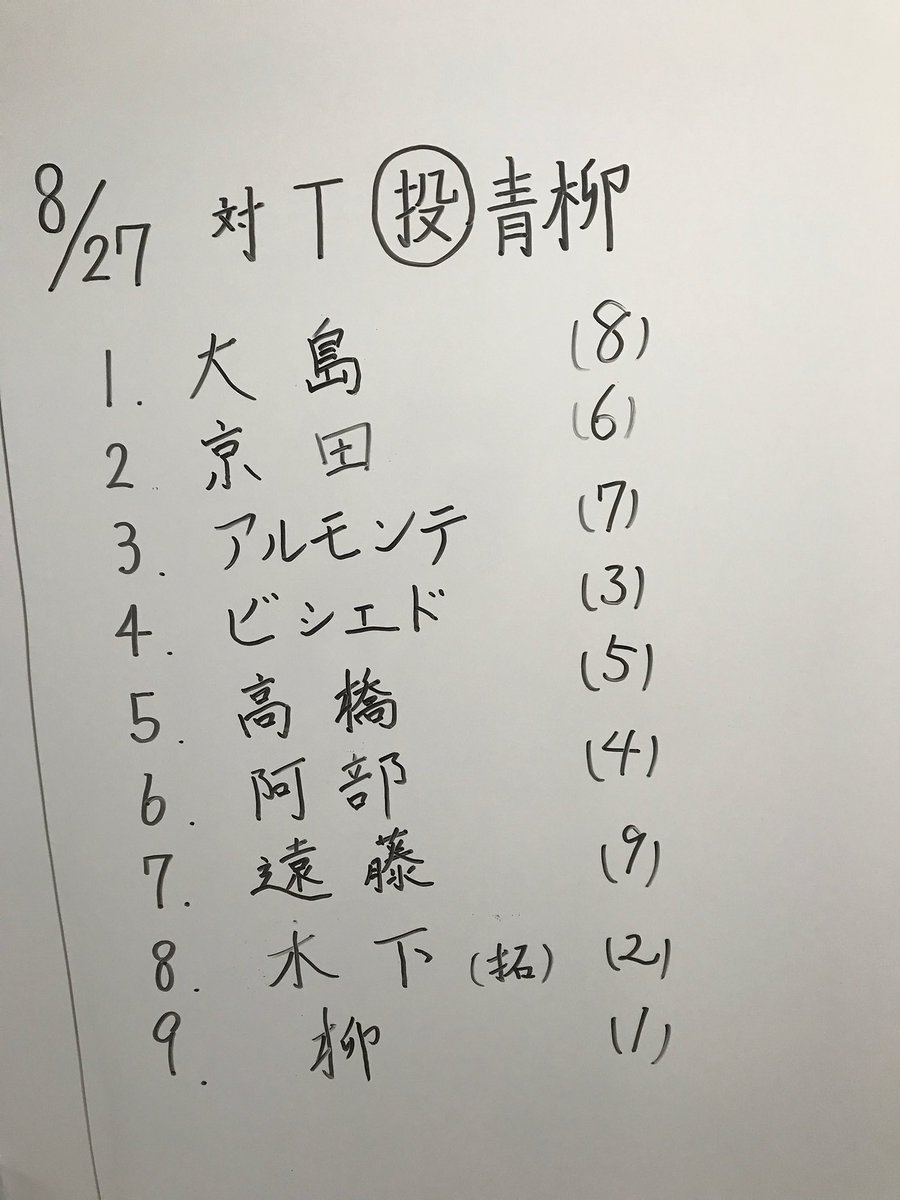 8/27 対T 投 青柳
1. 大島 (8)
2. 京田 (6)
3. アルモンテ (7)
4. ビシエド (3)
5. 高橋 (5)
6. 阿部 (4)
7. 遠藤 (9)
8. 木下(拓) (2)
9. 柳 (1)